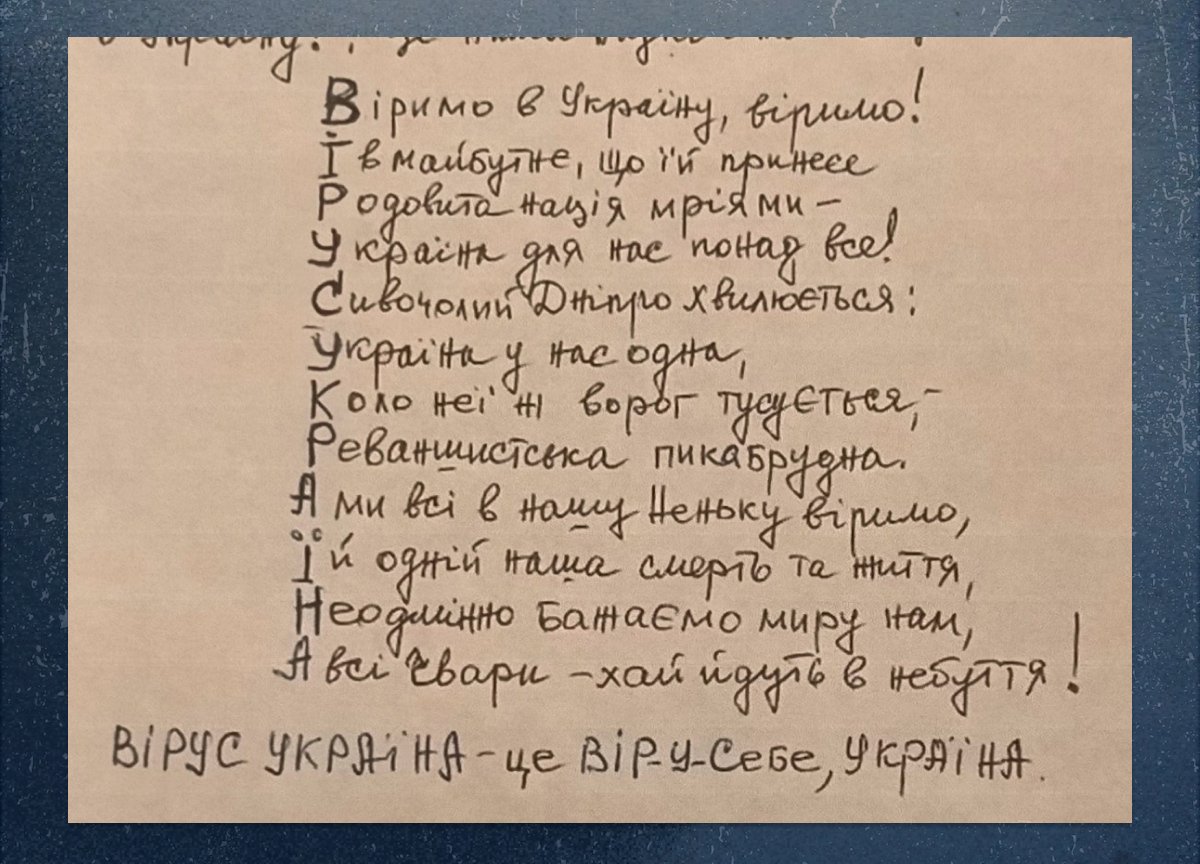 Віримо в Україну, віримо!
І в майбутнє, що їй принесе
Родовита нація мріями –
Україна для нас понад все!
Сивочолий Дніпро хвилюється:
Україна у нас одна,
Коло неї ж ворог тусується, –
Реваншистська пика брудна.
А ми всі в нашу Неньку віримо,
Їй одній наша смерть та життя,
Неодмінно бажаємо миру нам,
А всі чвари – хай йдуть в небуття!
ВІРУС УКРАЇНА – це ВІР-У-Себе, УКРАЇНА.